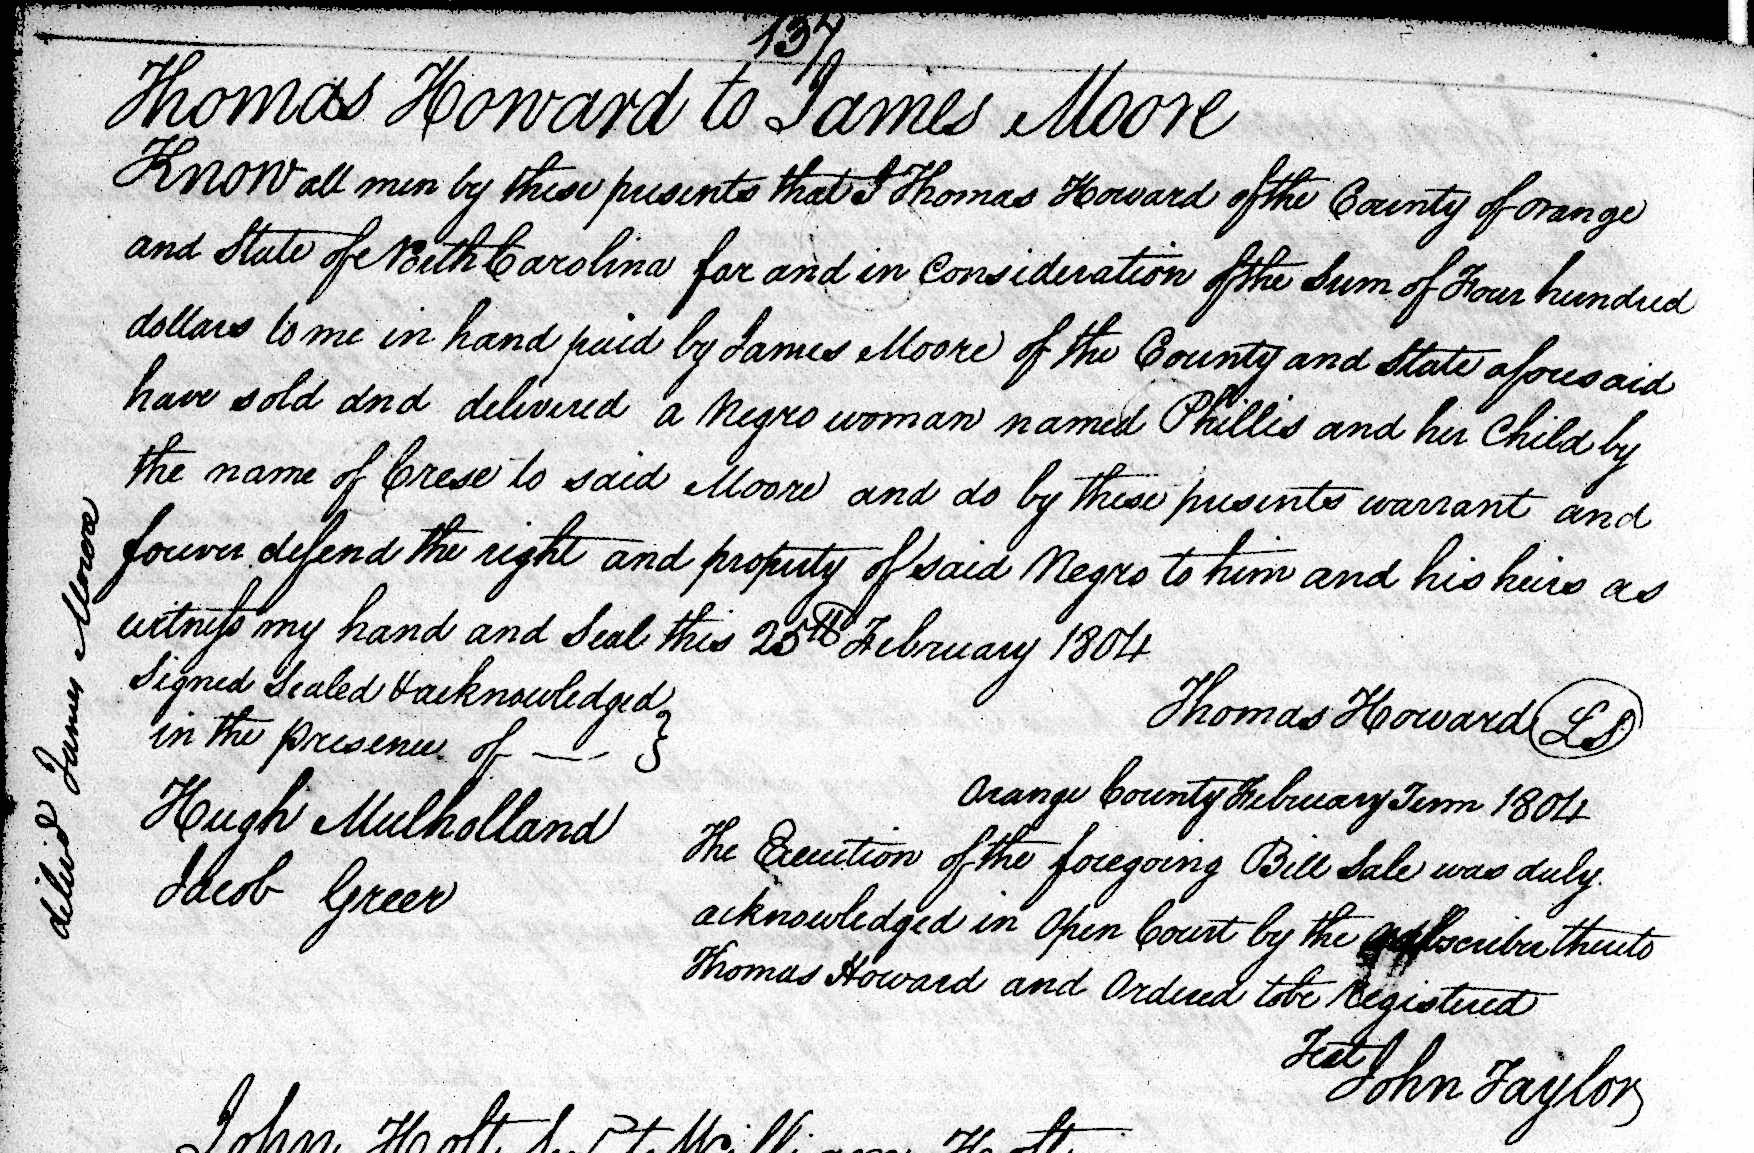 137
Thomas Howard to James Moore
Know all men by these presents that I Thomas Howard of the County of Orange
and State of North Carolina for and in Consideration of the Sum of Four hundred
dollars to me in hand paid by James Moore of the County and State aforesaid
have sold and delivered a Negro woman named Phillis and her Child by
the name of Crese to said Moore and do by these presents warrant and
forever defend the right and property of said Negro to him and his heirs as
witness my hand and Seal this 25th February 1804
Signed Sealed & acknowledged
in the presence of — — }
Thomas Howard LS
Hugh Mulholland
Jacob Greer
Orange County February Term 1804
The Execution of the foregoing Bill Sale was duly
acknowledged in Open Court by the subscriber thereto
Thomas Howard and Ordered to be Registered
Test
John Taylor
delivd James Moore
John Holt to William Holt